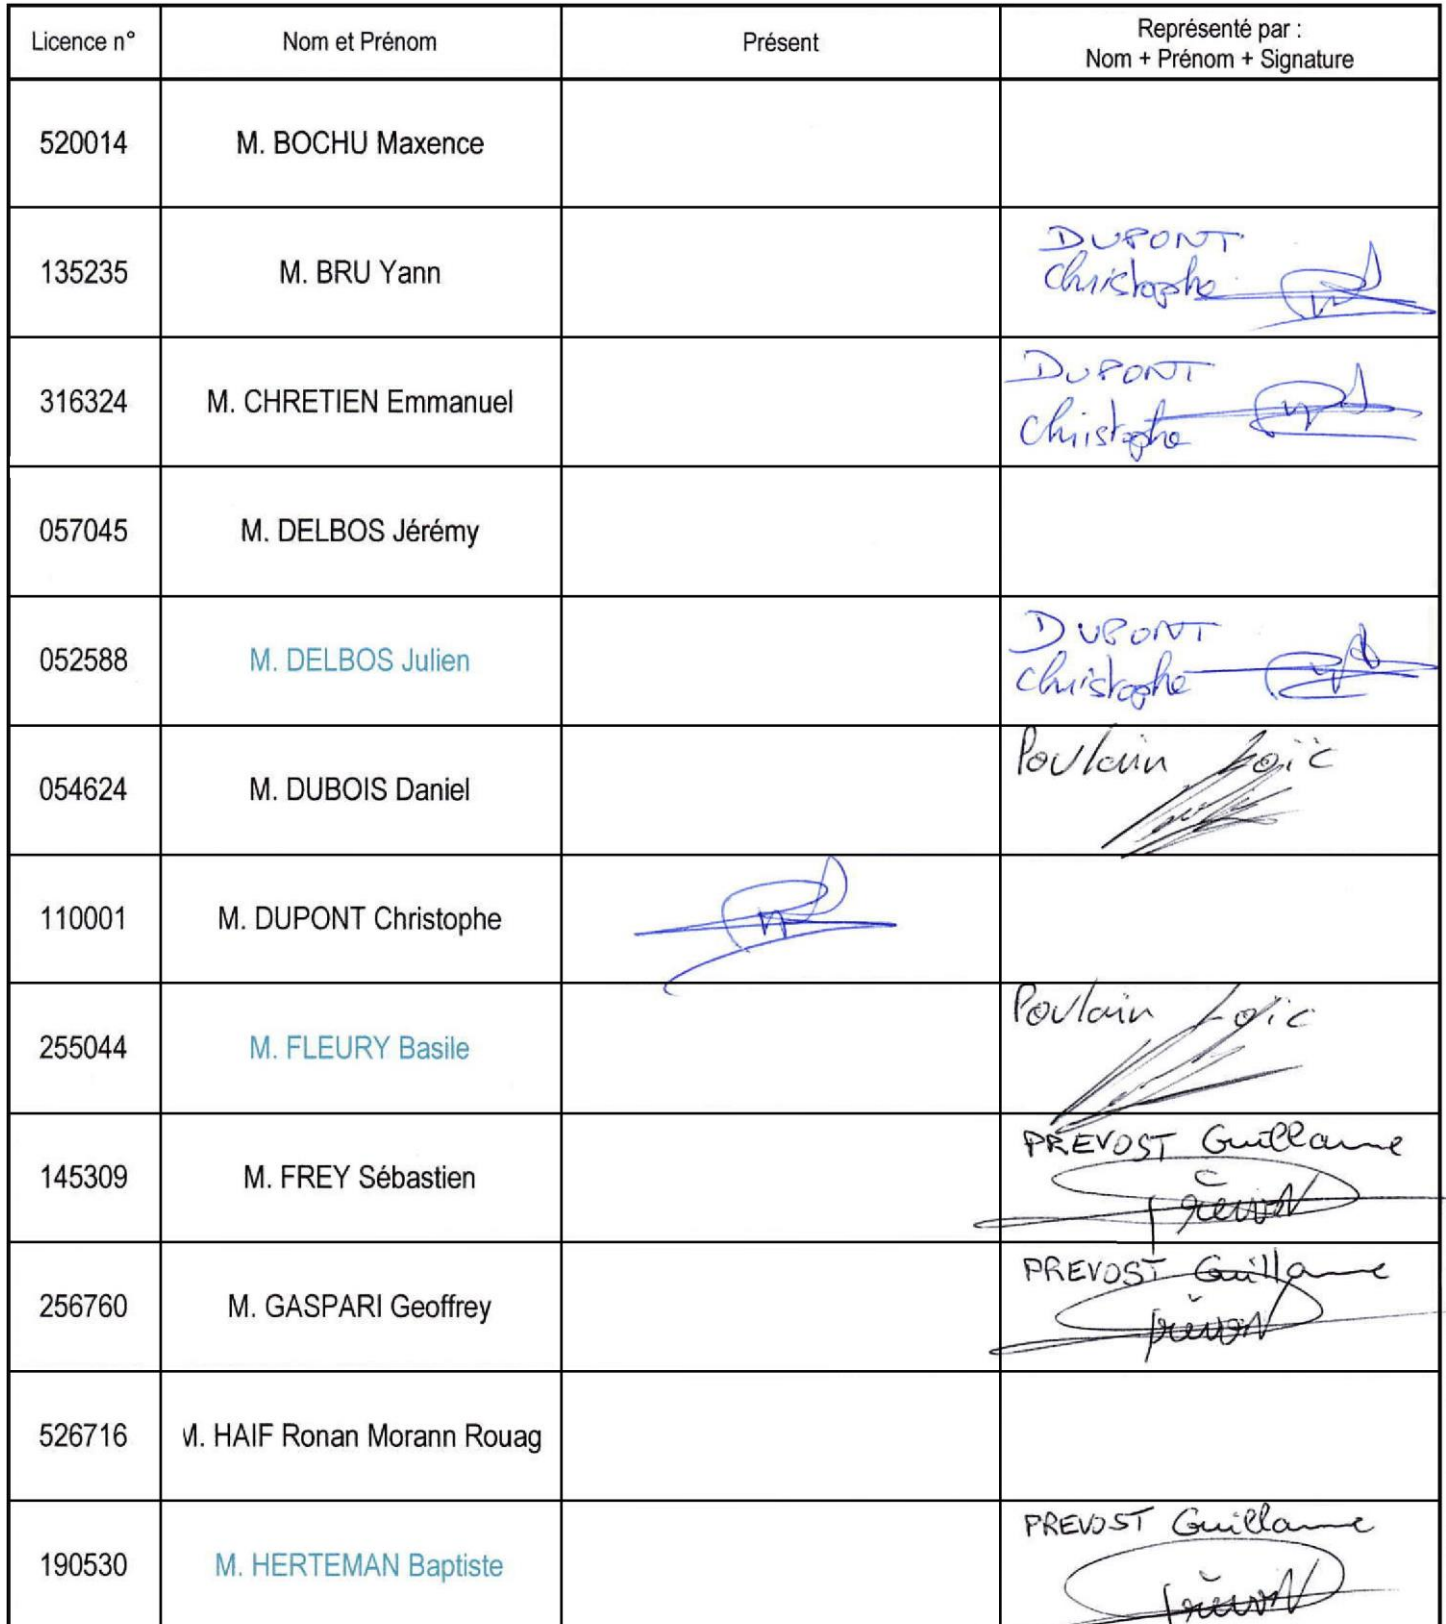 Licence n° Nom et Prénom Présent Représenté par :
Nom + Prénom + Signature
520014 M. BOCHU Maxence
135235 M. BRU Yann DUPONT
Christophe
316324 M. CHRETIEN Emmanuel DUPONT
Christophe
057045 M. DELBOS Jérémy
052588 M. DELBOS Julien DUPONT
Christophe
054624 M. DUBOIS Daniel Poulain Loïc
110001 M. DUPONT Christophe
255044 M. FLEURY Basile Poulain Loïc
145309 M. FREY Sébastien PREVOST Guillaume
Prévost
256760 M. GASPARI Geoffrey PREVOST Guillaume
Prévost
526716 M. HAIF Ronan Morann Rouag
190530 M. HERTEMAN Baptiste PREVOST Guillaume
Prévost